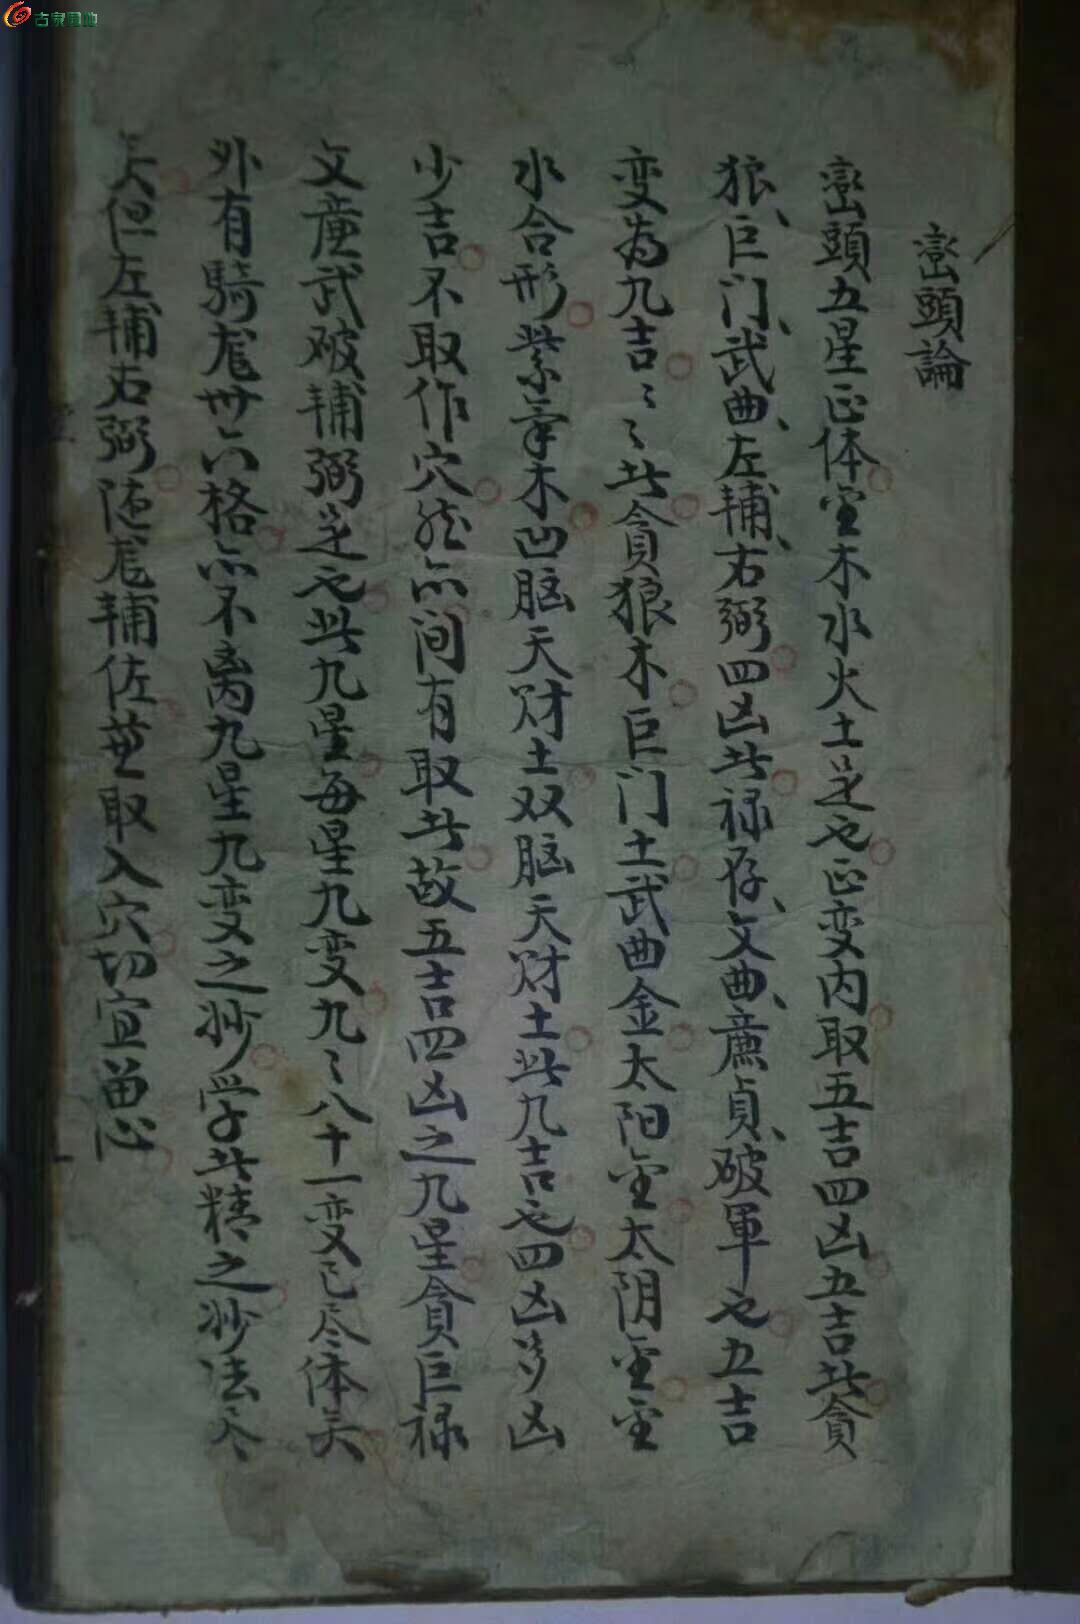 古泉园地
巒頭論
巒頭五星正体金木水火土是也正变内取五吉四凶五吉此貪
狼、巨门、武曲、左輔、右弼四凶此禄存、文曲、廉貞、破軍也五吉
变為九吉〻〻此貪狼木巨门土武曲金太阳金太阴金金
水合形紫氣木凹脑天财土双脑天财土此九吉也四凶多凶
少吉不取作穴然亦间有取此故五吉四凶之九星貪巨禄
文廉武破輔弼是也此九星每星九变九〻八十一变已尽体矣
外有騎龙卅六格亦不离九星九变之妙学此精之妙法尽
矣但左輔右弼随龙輔佐英取入穴切宜留心